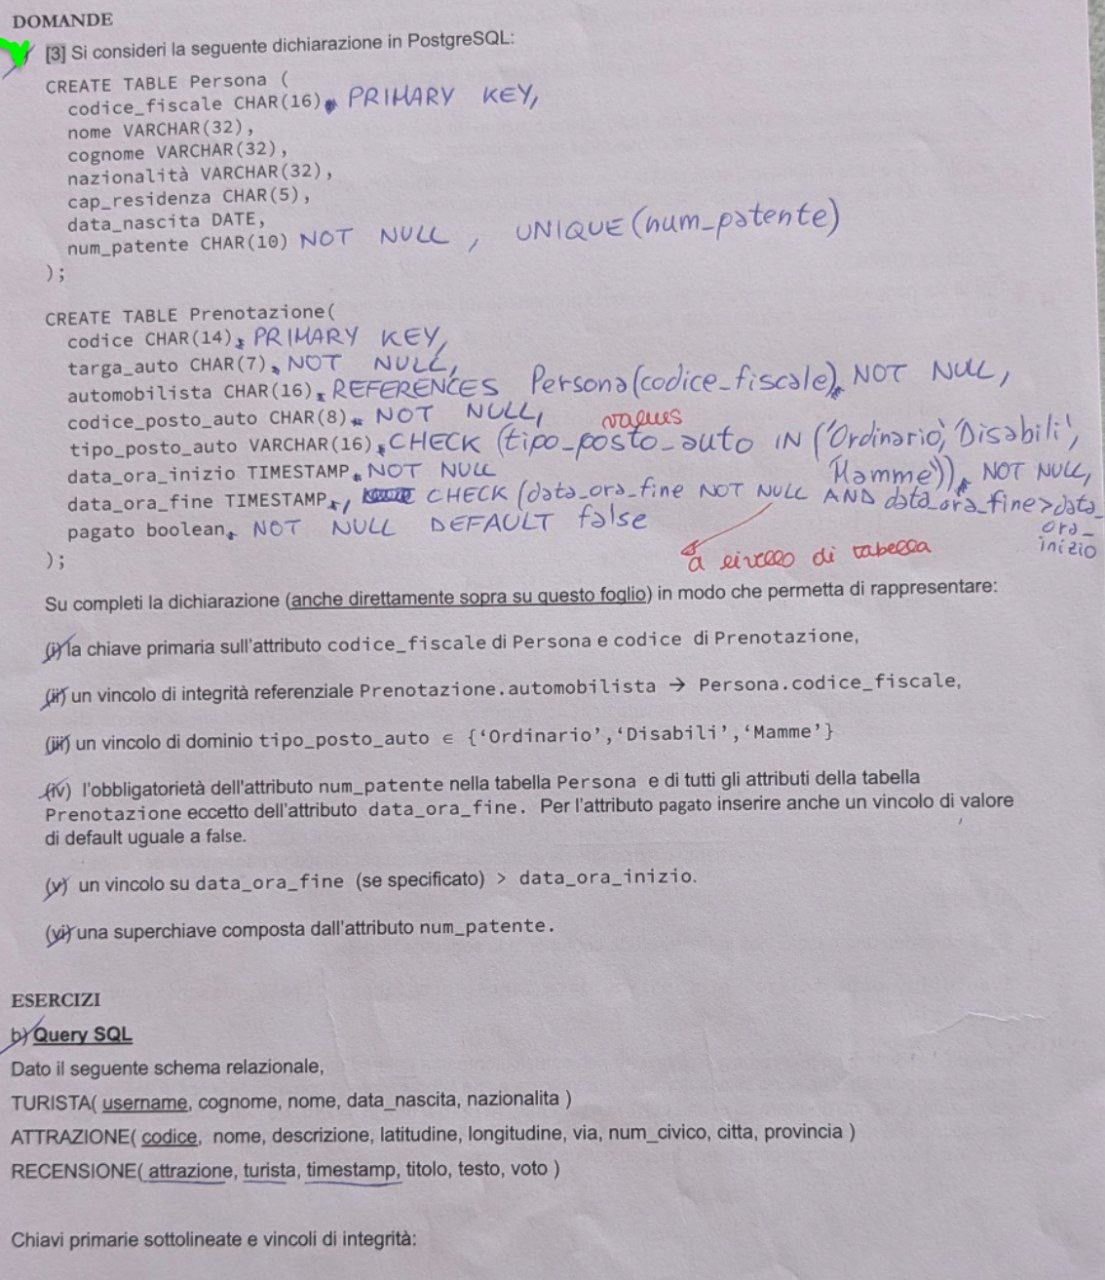 DOMANDE
[3] Si consideri la seguente dichiarazione in PostgreSQL:
CREATE TABLE Persona (
codice_fiscale CHAR(16), PRIMARY KEY,
nome VARCHAR(32),
cognome VARCHAR(32),
nazionalità VARCHAR(32),
cap_residenza CHAR(5),
data_nascita DATE,
num_patente CHAR(10) NOT NULL, UNIQUE(num_patente)
);
CREATE TABLE Prenotazione(
codice CHAR(14), PRIMARY KEY,
targa_auto CHAR(7), NOT NULL,
automobilista CHAR(16), REFERENCES Persona(codice_fiscale), NOT NUL,
codice_posto_auto CHAR(8), NOT NULL,
values
tipo_posto_auto VARCHAR(16), CHECK (tipo_posto_auto IN ('Ordinario', 'Disabili',
'Mamme')), NOT NULL,
data_ora_inizio TIMESTAMP, NOT NULL
data_ora_fine TIMESTAMP, , CHECK (data_ora_fine NOT NULL AND data_ora_fine>data_
ora_
inizio
pagato boolean, NOT NULL DEFAULT false
a livello di tabella
);
Su completi la dichiarazione (anche direttamente sopra su questo foglio) in modo che permetta di rappresentare:
(i) la chiave primaria sull'attributo codice_fiscale di Persona e codice di Prenotazione,
(ii) un vincolo di integrità referenziale Prenotazione.automobilista → Persona.codice_fiscale,
(iii) un vincolo di dominio tipo_posto_auto ∈ {‘Ordinario’,‘Disabili’,‘Mamme’}
(iv) l'obbligatorietà dell'attributo num_patente nella tabella Persona e di tutti gli attributi della tabella
Prenotazione eccetto dell'attributo data_ora_fine. Per l'attributo pagato inserire anche un vincolo di valore
di default uguale a false.
(v) un vincolo su data_ora_fine (se specificato) > data_ora_inizio.
(vi) una superchiave composta dall'attributo num_patente.
ESERCIZI
b) Query SQL
Dato il seguente schema relazionale,
TURISTA( username, cognome, nome, data_nascita, nazionalita )
ATTRAZIONE( codice, nome, descrizione, latitudine, longitudine, via, num_civico, citta, provincia )
RECENSIONE( attrazione, turista, timestamp, titolo, testo, voto )
Chiavi primarie sottolineate e vincoli di integrità: